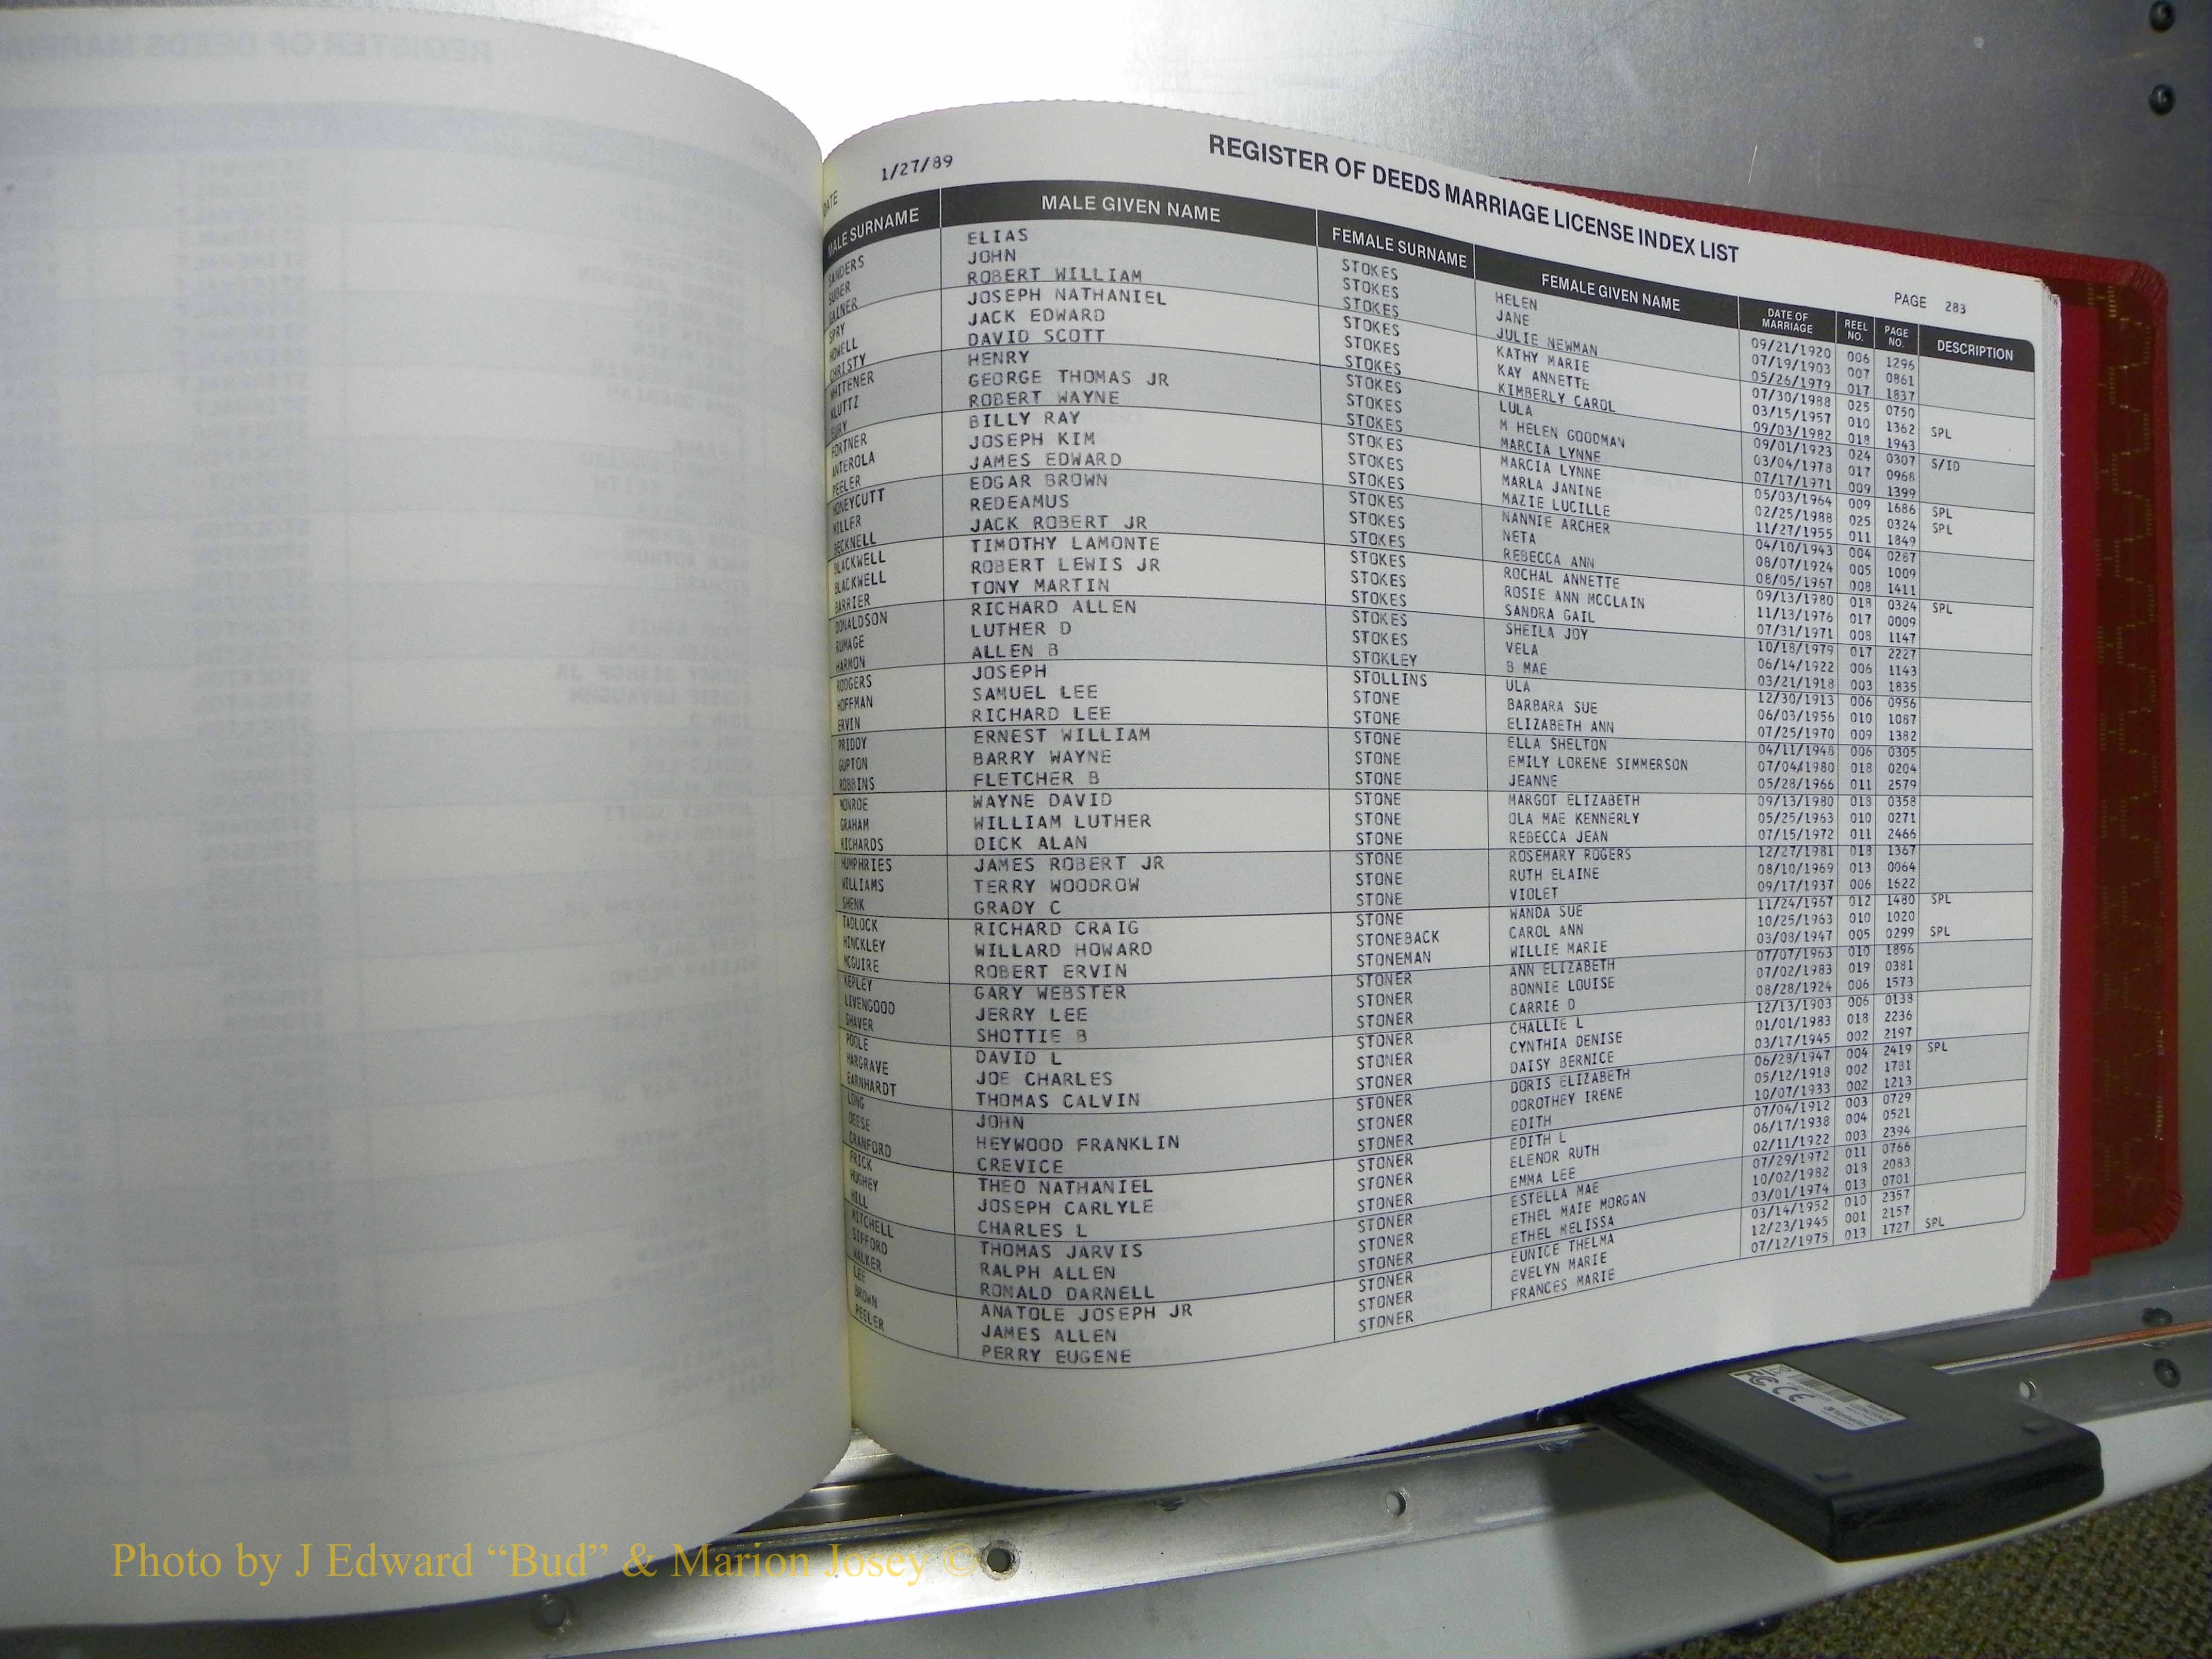 REGISTER OF DEEDS MARRIAGE LICENSE INDEX LIST
DATE 1/27/89 PAGE 283
MALE SURNAME MALE GIVEN NAME FEMALE SURNAME FEMALE GIVEN NAME DATE OF MARRIAGE REEL NO. PAGE NO. DESCRIPTION
SANDERS ELIAS STOKES HELEN 09/21/1920 006 1296
SUBER JOHN STOKES JANE 07/19/1903 007 0861
GAINER ROBERT WILLIAM STOKES JULIE NEWMAN 05/26/1979 017 1837
SPRY JOSEPH NATHANIEL STOKES KATHY MARIE 07/30/1988 025 0750
HOWELL JACK EDWARD STOKES KAY ANNETTE 03/15/1957 010 1362 SPL
CHRISTY DAVID SCOTT STOKES KIMBERLY CAROL 09/03/1982 018 1943
WHITENER HENRY STOKES LULA 09/01/1923 024 0307 S/ID
KLUTTZ GEORGE THOMAS JR STOKES M HELEN GOODMAN 03/04/1978 017 0968
EURY ROBERT WAYNE STOKES MARCIA LYNNE 07/17/1971 009 1399
FORTNER BILLY RAY STOKES MARCIA LYNNE 05/03/1964 009 1686 SPL
ANTEROLA JOSEPH KIM STOKES MARLA JANINE 02/25/1988 025 0324 SPL
PEELER JAMES EDWARD STOKES MAZIE LUCILLE 11/27/1955 011 1849
HONEYCUTT EDGAR BROWN STOKES NANNIE ARCHER 04/10/1943 004 0287
MILLER REDEAMUS STOKES NETA 08/07/1924 005 1009
BECKNELL JACK ROBERT JR STOKES REBECCA ANN 08/05/1967 008 1411
BLACKWELL TIMOTHY LAMONTE STOKES ROCHAL ANNETTE 09/13/1980 018 0324 SPL
BLACKWELL ROBERT LEWIS JR STOKES ROSIE ANN MCCLAIN 11/13/1976 017 0009
BARRIER TONY MARTIN STOKES SANDRA GAIL 07/31/1971 008 1147
DONALDSON RICHARD ALLEN STOKES SHEILA JOY 10/18/1979 017 2227
RUMAGE LUTHER D STOKES VELA 06/14/1922 006 1143
HARMON ALLEN B STOKLEY B MAE 03/21/1918 003 1835
RODGERS JOSEPH STOLLINS ULA 12/30/1913 006 0956
HOFFMAN SAMUEL LEE STONE BARBARA SUE 06/03/1956 010 1087
ERVIN RICHARD LEE STONE ELIZABETH ANN 07/25/1970 009 1382
PRIDDY ERNEST WILLIAM STONE ELLA SHELTON 04/11/1948 006 0305
GUPTON BARRY WAYNE STONE EMILY LORENE SIMMERSON 07/04/1980 018 0204
ROBBINS FLETCHER B STONE JEANNE 05/28/1966 011 2579
MONROE WAYNE DAVID STONE MARGOT ELIZABETH 09/13/1980 018 0358
GRAHAM WILLIAM LUTHER STONE OLA MAE KENNERLY 05/25/1963 010 0271
RICHARDS DICK ALAN STONE REBECCA JEAN 07/15/1972 011 2466
HUMPHRIES JAMES ROBERT JR STONE ROSEMARY ROGERS 12/27/1981 018 1367
WILLIAMS TERRY WOODROW STONE RUTH ELAINE 08/10/1969 013 0064
SHENK GRADY C STONE VIOLET 09/17/1937 006 1622
TADLOCK RICHARD CRAIG STONE WANDA SUE 11/24/1967 012 1480 SPL
HINCKLEY WILLARD HOWARD STONEBACK CAROL ANN 10/25/1963 010 1020
MCGUIRE ROBERT ERVIN STONEMAN WILLIE MARIE 03/08/1947 005 0299 SPL
KEPLEY GARY WEBSTER STONER ANN ELIZABETH 07/07/1963 010 1896
LIVENGOOD JERRY LEE STONER BONNIE LOUISE 07/02/1983 019 0381
SHAVER SHOTTIE B STONER CARRIE D 08/28/1924 006 1573
POOLE DAVID L STONER CHALLIE L 12/13/1903 006 0138
HARGRAVE JOE CHARLES STONER CYNTHIA DENISE 01/01/1983 018 2236
EARNHARDT THOMAS CALVIN STONER DAISY BERNICE 03/17/1945 002 2197
LONG JOHN STONER DORIS ELIZABETH 06/28/1947 004 2419 SPL
DEESE HEYWOOD FRANKLIN STONER DOROTHEY IRENE 05/12/1918 002 1781
CRANFORD CREVICE STONER EDITH 10/07/1933 002 1213
FRICK THEO NATHANIEL STONER EDITH L 07/04/1912 003 0729
HUGHEY JOSEPH CARLYLE STONER ELENOR RUTH 06/17/1938 004 0521
HILL CHARLES L STONER EMMA LEE 02/11/1922 003 2394
MITCHELL THOMAS JARVIS STONER ESTELLA MAE 07/29/1972 011 0766
SIFFORD RALPH ALLEN STONER ETHEL MAIE MORGAN 10/02/1982 018 2083
WALKER RONALD DARNELL STONER ETHEL MELISSA 03/01/1974 013 0701
LEE ANATOLE JOSEPH JR STONER EUNICE THELMA 03/14/1952 010 2357
BROWN JAMES ALLEN STONER EVELYN MARIE 12/23/1945 001 2157
PEELER PERRY EUGENE STONER FRANCES MARIE 07/12/1975 013 1727 SPL
Photo by J Edward “Bud” & Marion Josey ©